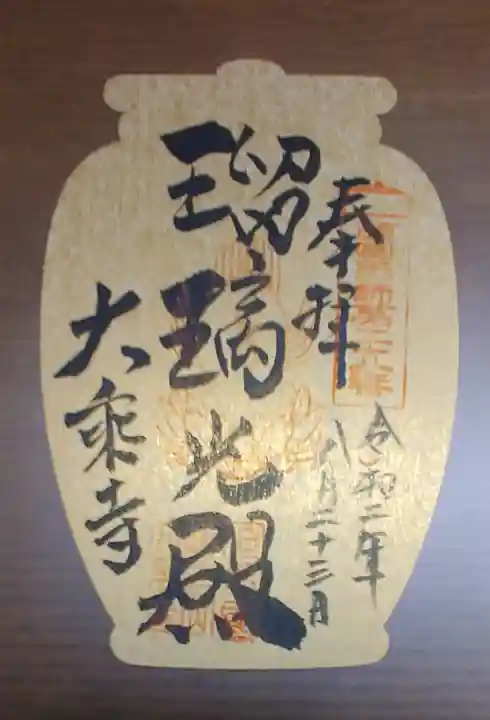 奉拝
令和二年
八月二十三日
瑠璃光殿
大乘寺